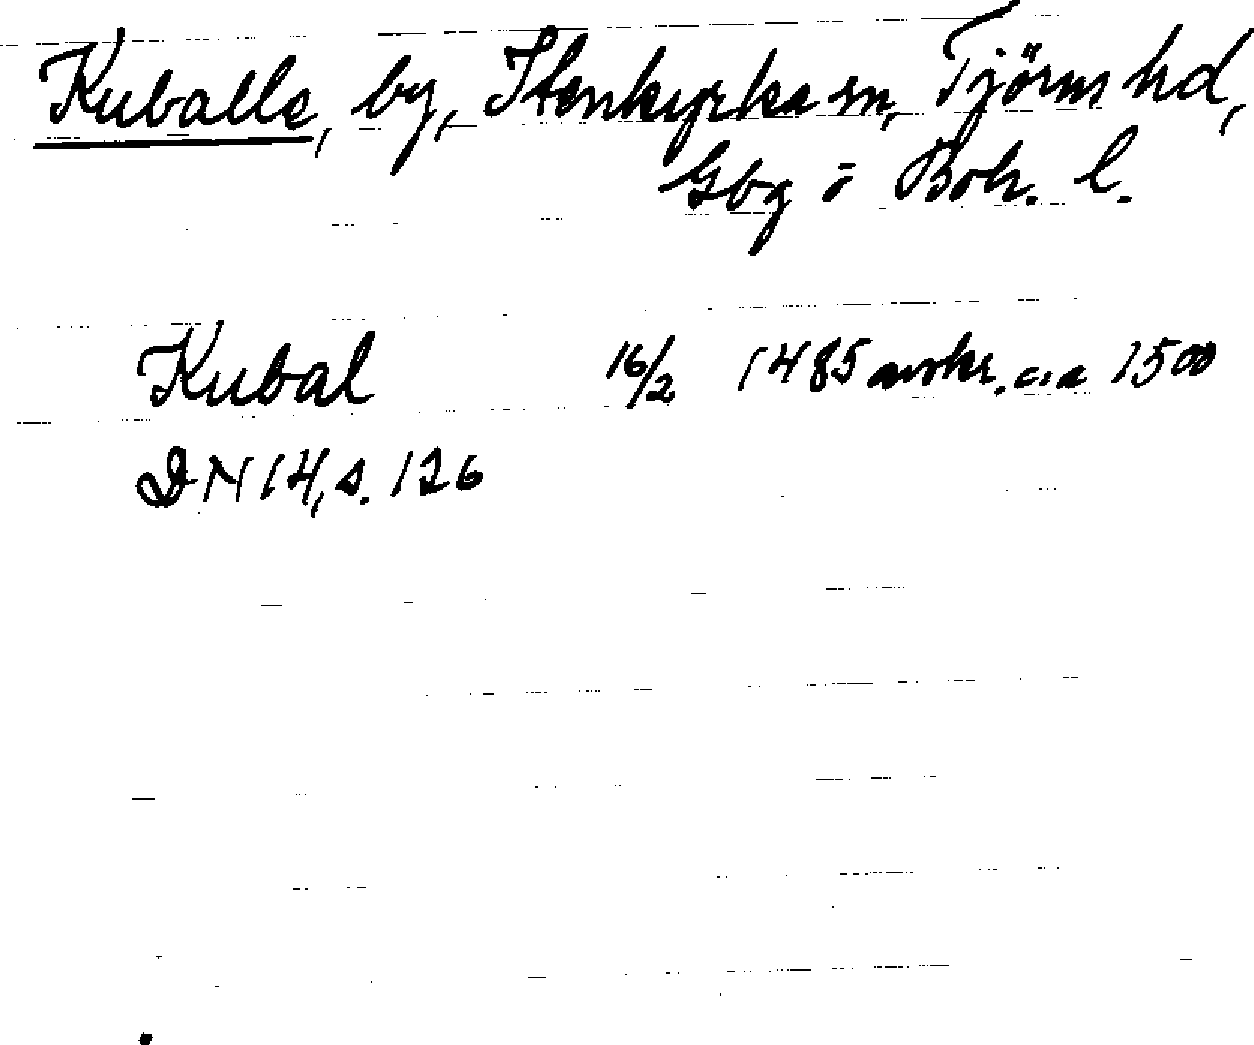 Kuballe, by, Stenkyrka sn, Tjörns hd,
Gbg o Boh. l.
Kubal 16/2 1485 avskr. c:a 1500
DN 14, s. 126